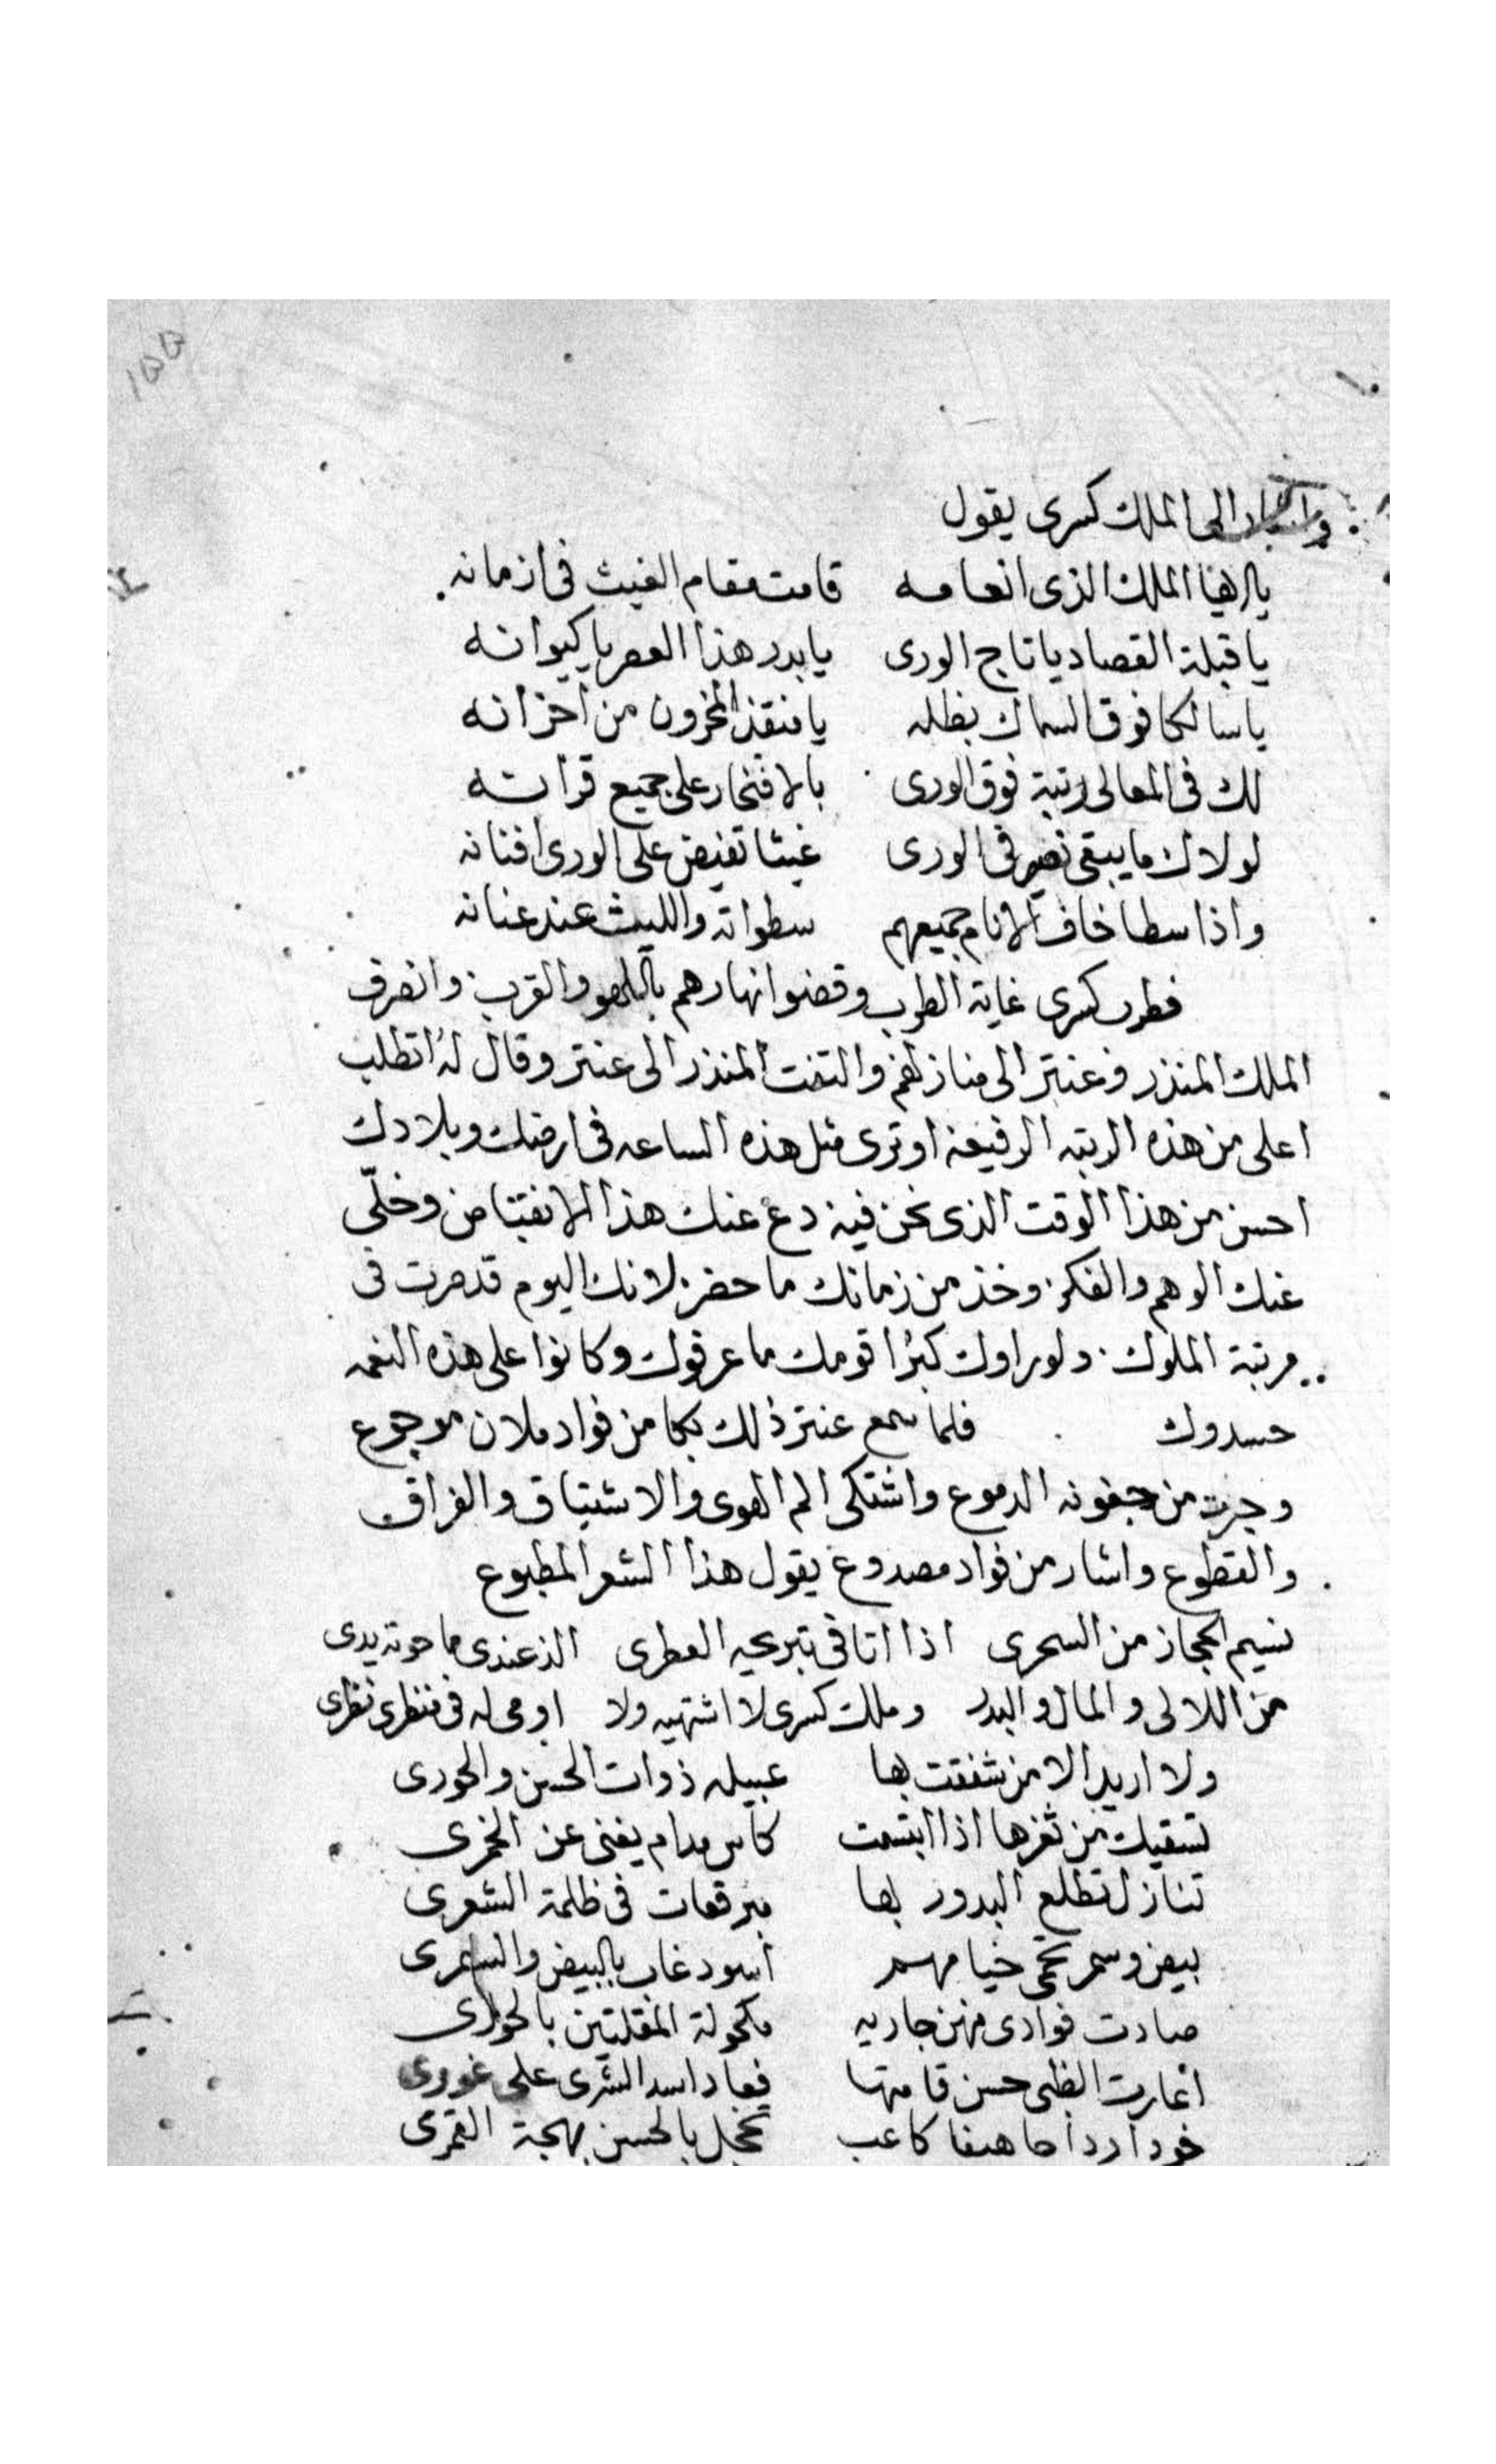 واشار الى الملك كسرى يقول
يا ايها الملك الذى انعامه قامت مقام الغيث فى ازمانه
يا قبلة القصاد يا تاج الورى يا بدر هذا العصر يا كيوانه
يا سالكا فوق السماك بظله يا منقذ المحزون من احزانه
لك فى المعالى رتبة فوق الورى بالافتخار على جميع قرانه
لولاك ما يبقى نصير فى الورى غيثا تفيض على الورى افنانه
واذا سطا خاف الانام جميعهم سطواته والليث عند عنانه
فطرب كسرى غاية الطرب وقضوا نهارهم باللهو والقرب وانصرف
الملك المنذر وعنتر الى منازلهم والتفت المنذر الى عنتر وقال له اتطلب
اعلى من هذه الرتبه الرفيعة او ترى مثل هذه الساعه فى ارضك وبلادك
احسن من هذا الوقت الذى نحن فيه دع عنك هذا الانقباض وخلّى
عنك الوهم والفكر وخذ من زمانك ما حضر لانك اليوم قد صرت فى
مرتبة الملوك ولو راوك كبرا قومك ما عرفوك وكانوا على هذه النعمه
حسدوك فلما سمع عنتر ذلك بكا من فواد ملان موجوع
وجرت من جفونه الدموع واشتكى الم الهوى والاشتياق والفراق
والقطوع واشار من فواد مصدوع يقول هذا الشعر المطبوع
نسيم الحجاز من السحرى اذا اتا فى بتريحه العطرى الذ عندى مما حوته يدى
من اللالى والمال والبدر وملك كسرى لا اشتهيه ولا اومى له فى منظرى نظرى
ولا اريد الا من شغفت بها عبيله ذوات الحسن والحورى
تسقيك من ثغرها اذا ابتسمت كاس مدام يغنى عن الخمرى
تنازل تطلع البدور بها مبرقعات فى ظلمة الشعرى
بيض وسمر تحمى خيامهم اسود غاب بالبيض والسمرى
صادت فوادى منهن جاريه مكحولة المقلتين بالحورى
اعارت الظبى حسن قامتها فعاد اسد الشرى على غورى
خودا رداحا هيفا كاعب تخجل بالحسن بهجة القمرى